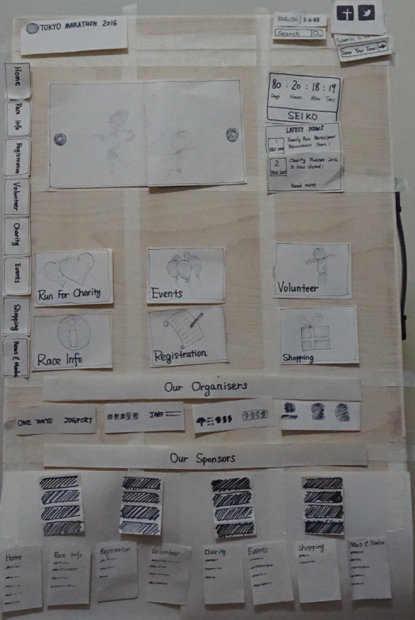 TOKYO MARATHON 2016
ENGLISH
Search
Home
Run Info
Registration
Volunteer
Charity
Events
Shopping
News & Media
80 : 20 : 18 : 19
Days Hours Mins Secs
SEIKO
LATEST NEWS
1
2
Read more
Run For Charity
Events
Volunteer
Race Info
Registration
Shopping
Our Organisers
ONE TOKYO JOGPORT
JAAF
Our Sponsors
Home
Race Info
Registration
Volunteer
Charity
Events
Shopping
News & Media